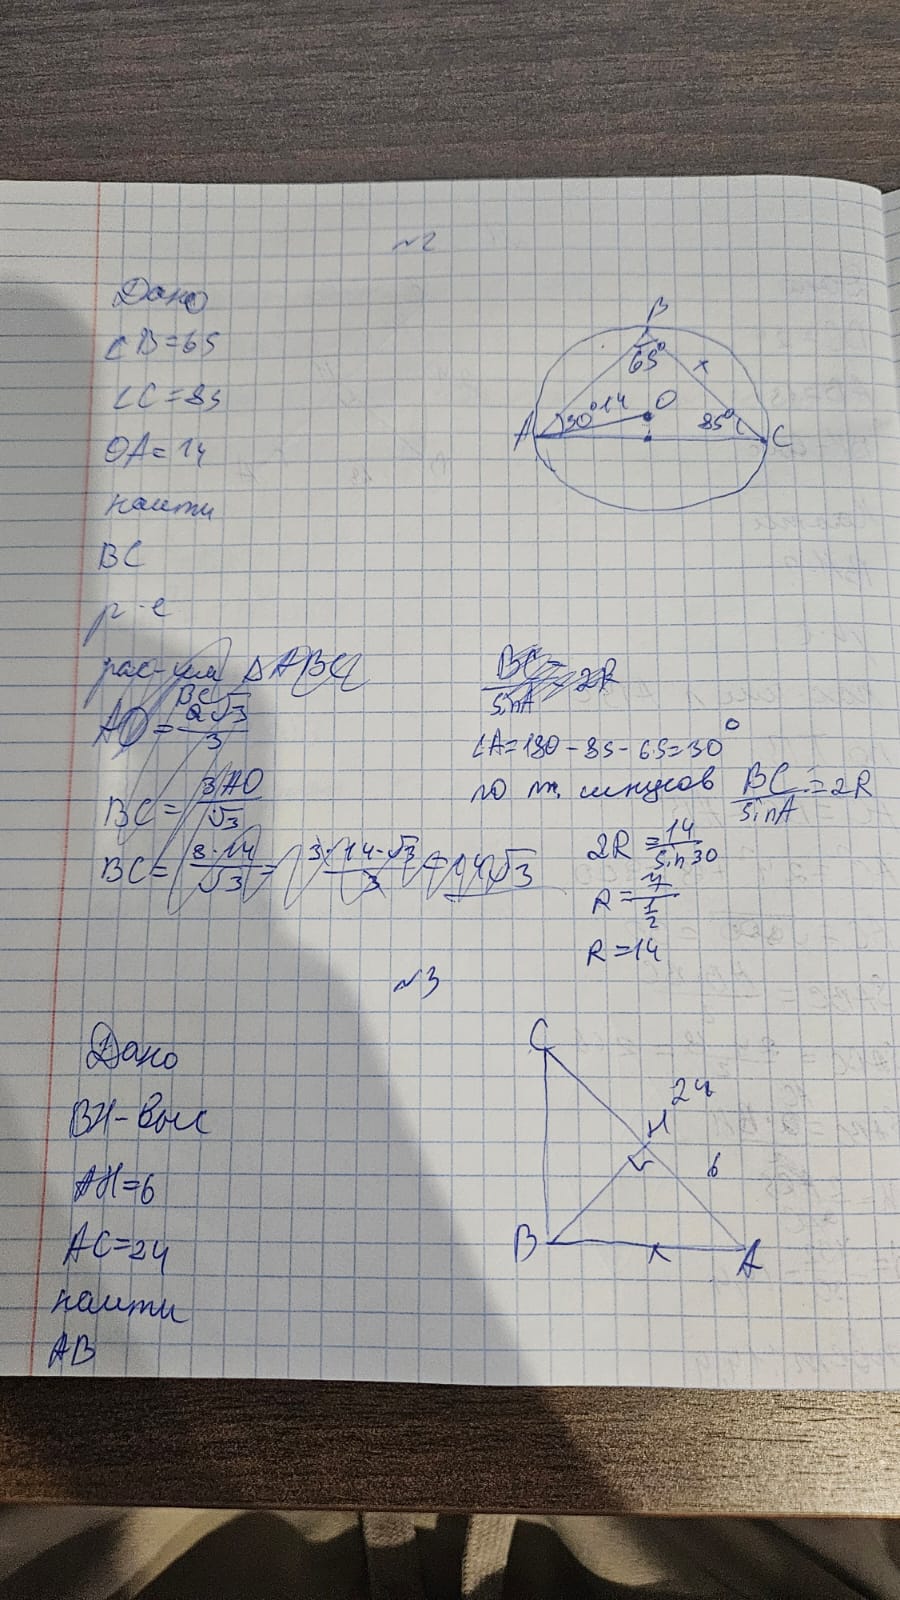 №2
Дано
∠B=65
∠C=85
OA=14
наити
BC
р-е
рас-им △ABC
AO = BC√3 / 3
BC = 3AO / √3
BC = 3·14 / √3 = 3·14·√3 / 3 = 14√3
B
65°
x
30°
14
O
85°
A
C
BC / sinA = 2R
∠A=180-85-65=30°
по т. синусов BC / sinA = 2R
2R = 14 / sin30
R = 7 / 1/2
R=14
№3
Дано
BH-выс
AH=6
AC=24
наити
AB
C
24
H
6
B
x
A